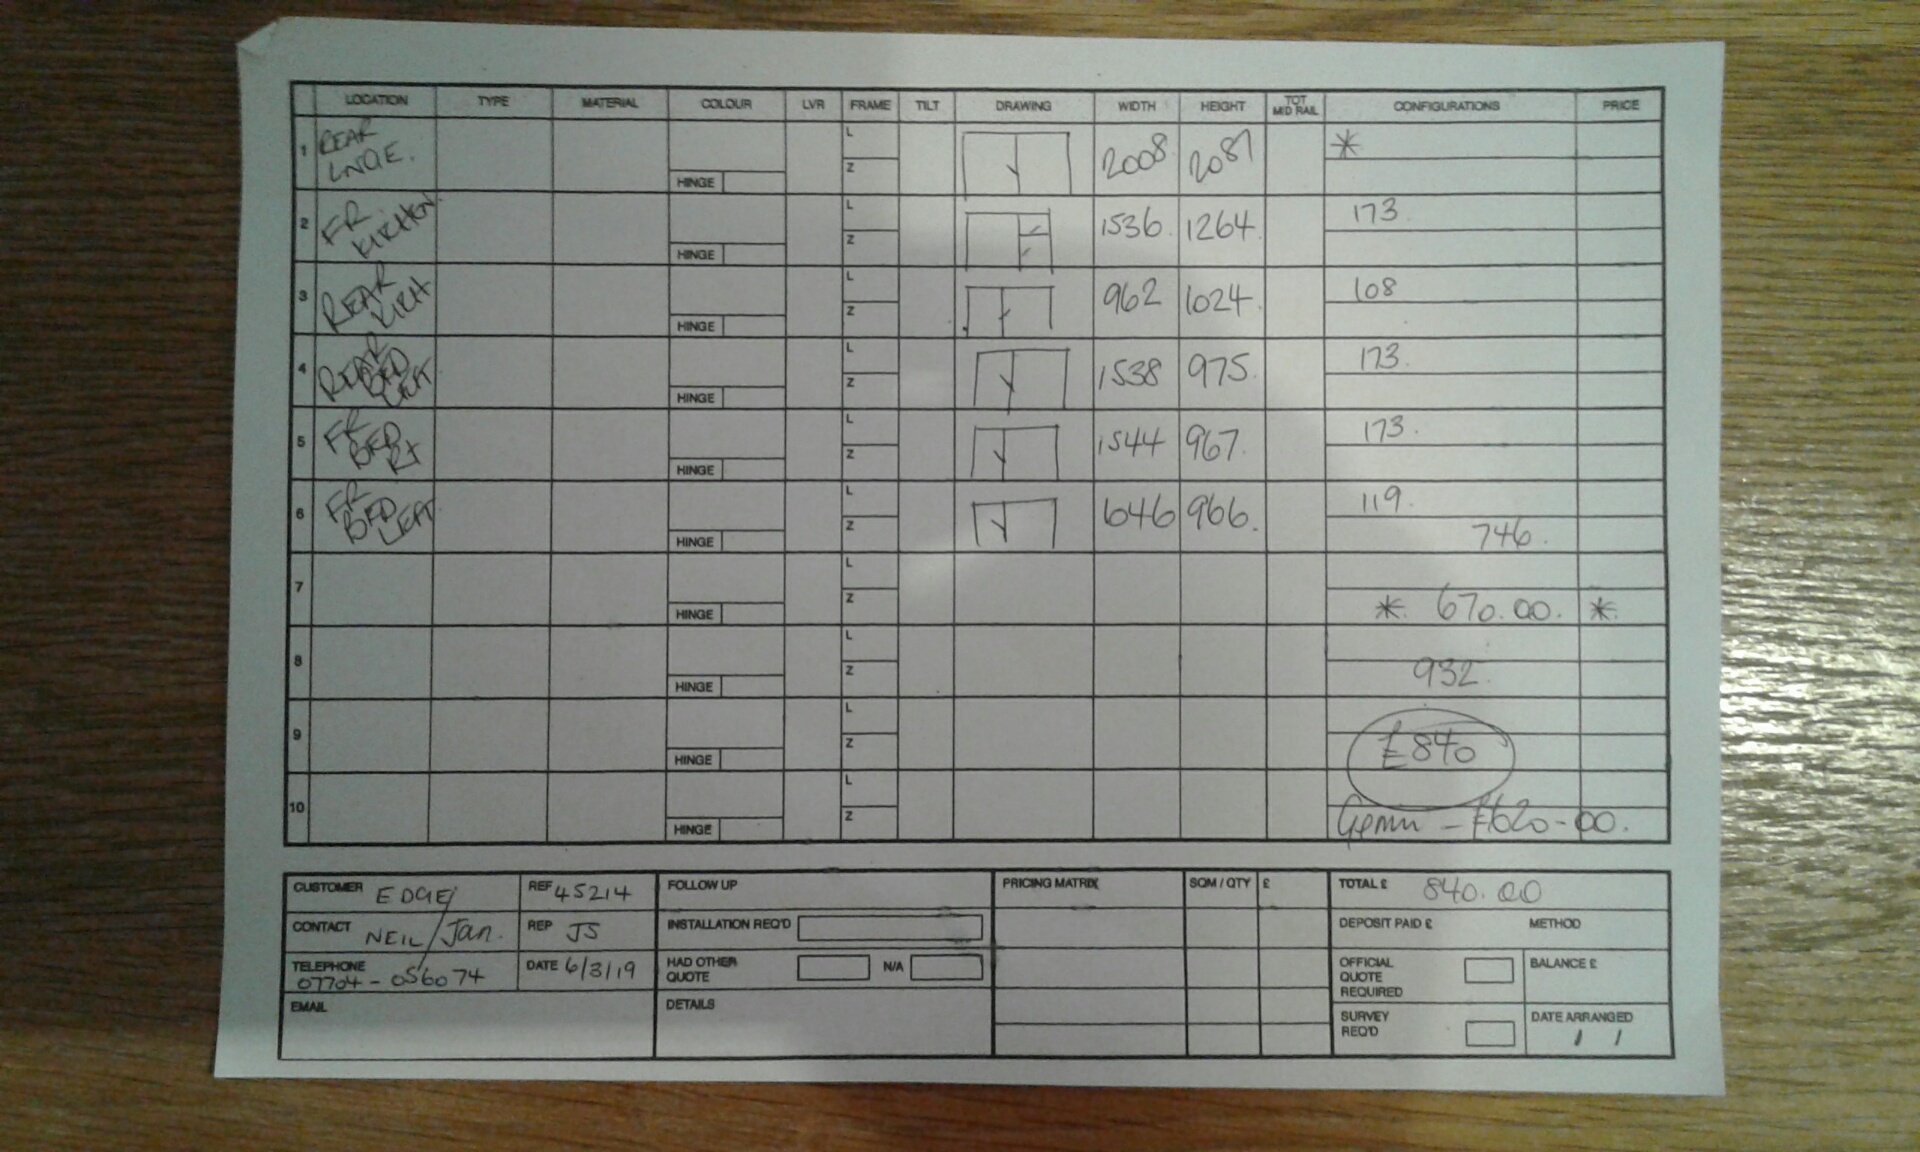 LOCATION TYPE MATERIAL COLOUR LVR FRAME TILT DRAWING WIDTH HEIGHT TOT MID RAIL CONFIGURATIONS PRICE
1 REAR LNGE. HINGE L Z 2008 2087 *
2 FR KITCHEN. HINGE L Z 1536. 1264. 173.
3 REAR KITCH HINGE L Z 962 1024. 108
4 REAR BED LEFT HINGE L Z 1538 975. 173.
5 FR BED RT HINGE L Z 1544 967. 173.
6 FR BED LEFT HINGE L Z 646 966. 119.
746.
7 HINGE L Z * 670.00. *
8 HINGE L Z 932.
9 HINGE L Z £840
10 HINGE L Z - £620-00.
CUSTOMER EDGE/ REF 45214 FOLLOW UP PRICING MATRIX SQM / QTY £ TOTAL £ 840.00
CONTACT NEIL/Jan. REP JS INSTALLATION REQ'D DEPOSIT PAID £ METHOD
TELEPHONE 07704-056074 DATE 6/3/19 HAD OTHER QUOTE N/A OFFICIAL QUOTE REQUIRED BALANCE £
EMAIL DETAILS SURVEY REQ'D DATE ARRANGED / /